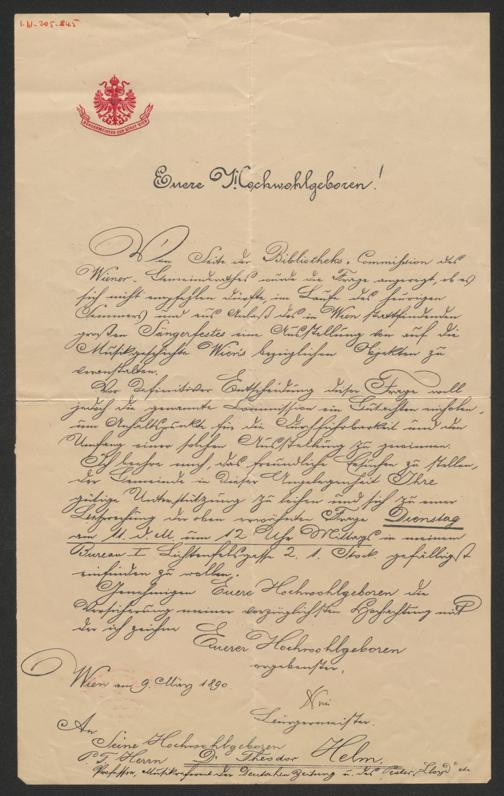 I.N. 205.845
BÜRGERMEISTER DER STADT WIEN
Euere Hochwohlgeboren!
Von Seite der Bibliotheks-Commission des
Wiener-Gemeinderathes wurde die Frage angeregt, ob es
sich nicht empfehlen dürfte, im Laufe des heurigen
Sommers und aus Anlaß des in Wien stattfindenden
großen Sängerfestes eine Ausstellung von auf die
Musikgeschichte Wien's bezüglichen Objekten zu
veranstalten.
Vor definitiver Entscheidung dieser Frage will
jedoch die genannte Commission ein Gutachten einholen,
um Anhaltspunkte für die Durchführbarkeit und den
Umfang einer solchen Ausstellung zu gewinnen.
Ich beehre mich, das freundliche Ersuchen zu stellen,
der Gemeinde in dieser Angelegenheit Ihre
gütige Unterstützung zu leihen und sich zu einer
Besprechung der oben erwähnten Frage Dienstag
am 11. d. M. um 12 Uhr Mittags in meinem
Bureau I. Lichtenfelsgasse 2. 1. Stock gefälligst
einfinden zu wollen.
Genehmigen Euere Hochwohlgeboren die
Versicherung meiner vorzüglichsten Hochachtung mit
der ich zeichne
Euerer Hochwohlgeboren
ergebenster
Wien am 9. März 1890.
Bürgermeister.
An
Seine Hochwohlgeboren
P. T. Herrn Dr. Theodor Helm,
Professor, Musikreferent der Deutschen Zeitung u. des Pester "Lloyd" etc